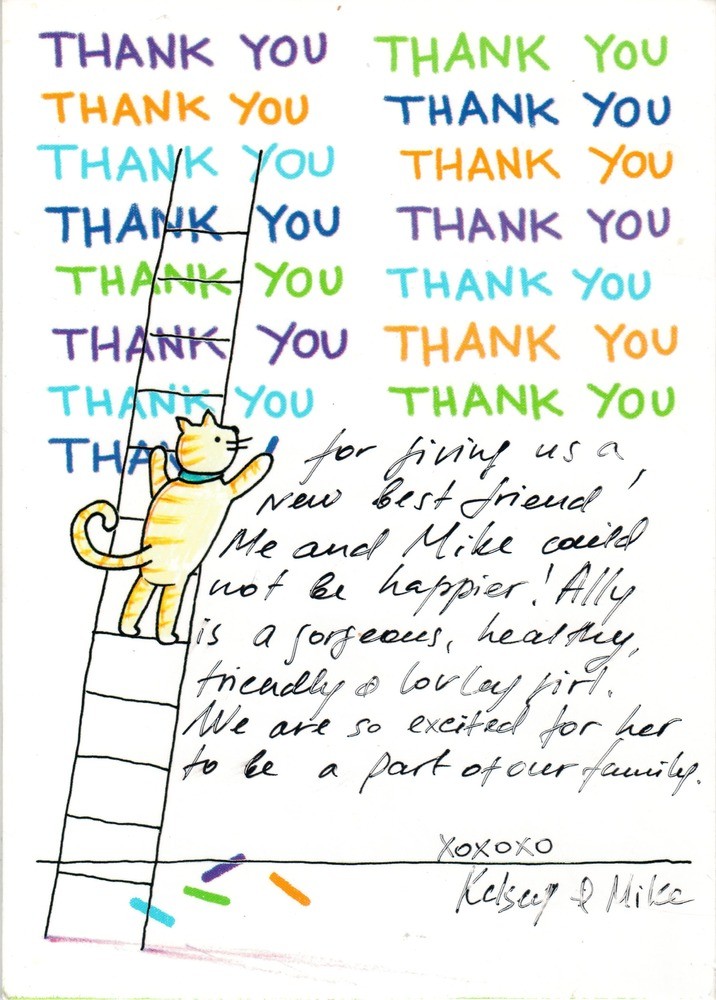 THANK YOU THANK YOU
THANK YOU THANK YOU
THANK YOU THANK YOU
THANK YOU THANK YOU
THANK YOU THANK YOU
THANK YOU THANK YOU
THANK YOU THANK YOU
THAN for giving us a
new best friend!
Me and Mike could
not be happier! Ally
is a gorgeous, healthy,
friendly & lovley girl.
We are so excited for her
to be a part of our family.
xoxoxo
Kelsey & Mike